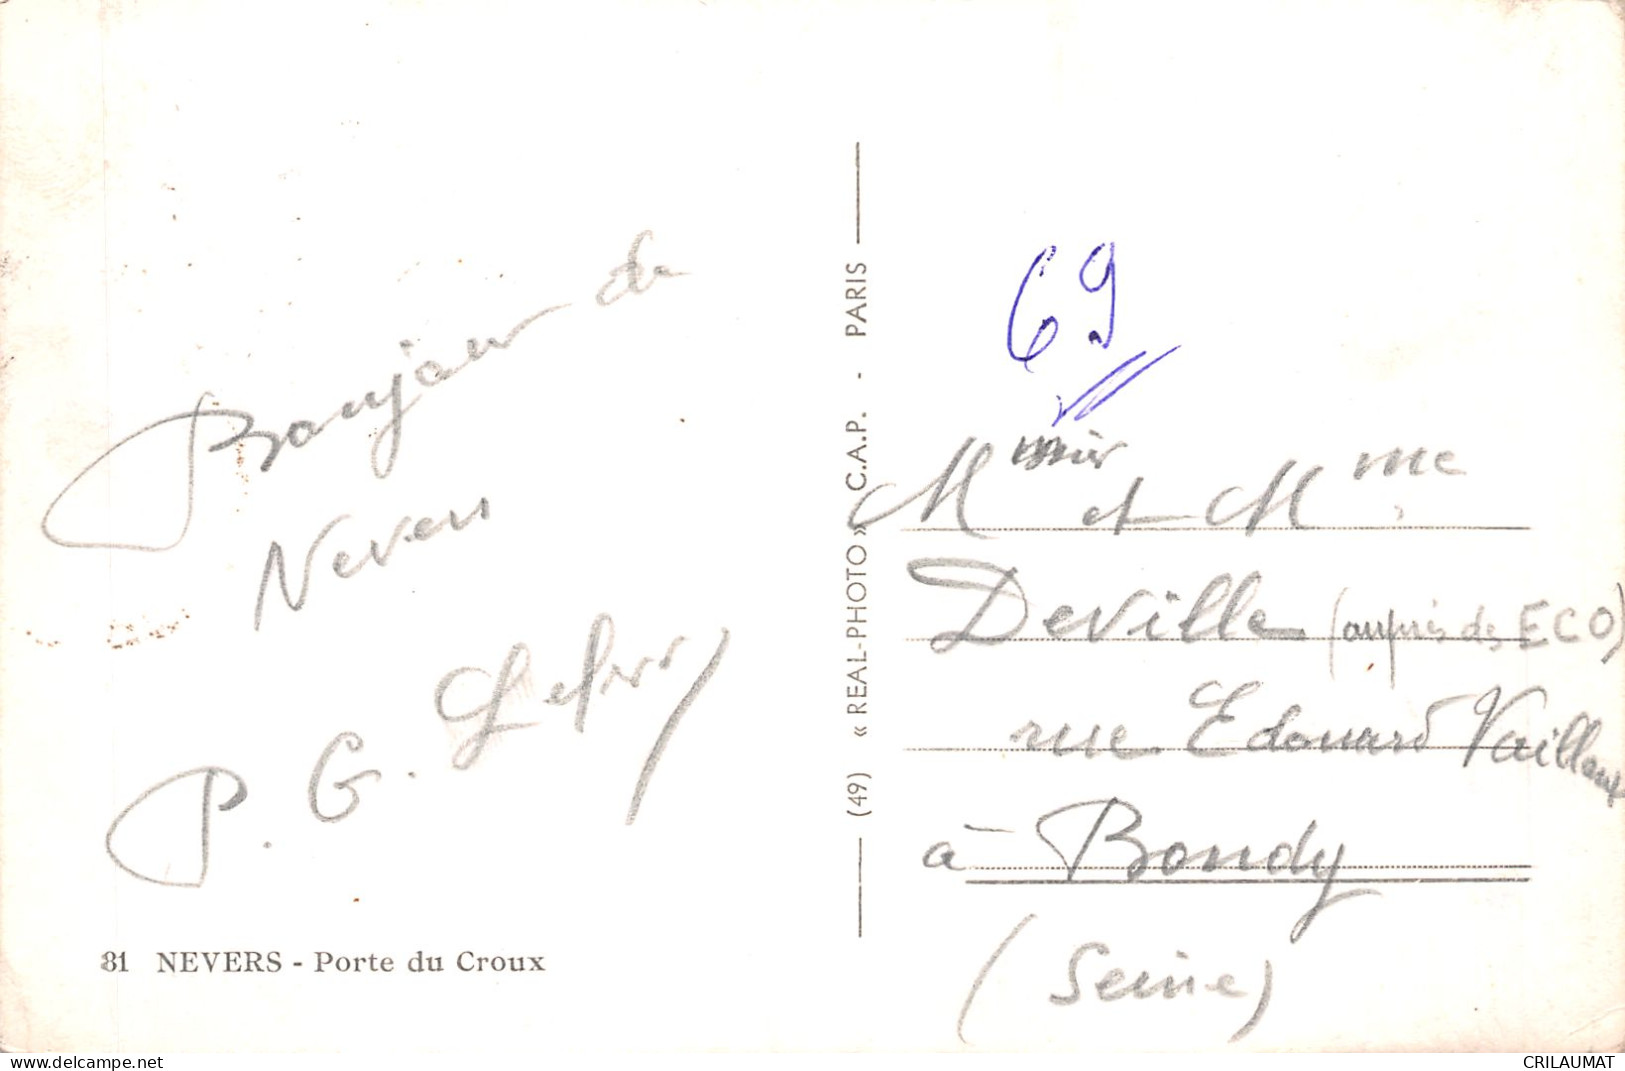 Bonjour de
Nevers
P. G. Lefèvre
81 NEVERS - Porte du Croux
(49) « REAL-PHOTO » C.A.P. - PARIS
69
Msieur et Mme
Deville (auprès de ECO)
rue Edouard Vaillant
à Bondy
(Seine)
delcampe.net
CRILAUMAT